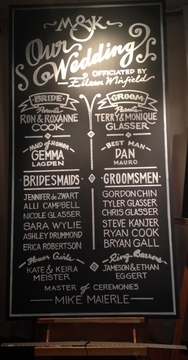 M&K
Our
Wedding
OFFICIATED BY
Eileen Winfield
BRIDE
GROOM
Parents
Parents
RON & ROXANNE
COOK
TERRY & MONIQUE
GLASSER
MAID of HONOR
GEMMA
LAGDEN
BEST MAN
DAN
MAURO
BRIDESMAIDS
JENNIFER de ZWART
ALLI CAMPBELL
NICOLE GLASSER
SARA WYLIE
ASHLEY DRUMMOND
ERICA ROBERTSON
GROOMSMEN
GORDON CHIN
TYLER GLASSER
CHRIS GLASSER
STEVE KANJER
RYAN COOK
BRYAN GALL
Flower Girls
KATE & KEIRA
MEISTER
Ring Bearers
JAMESON & ETHAN
EGGERT
MASTER of CEREMONIES
MIKE MAIERLE